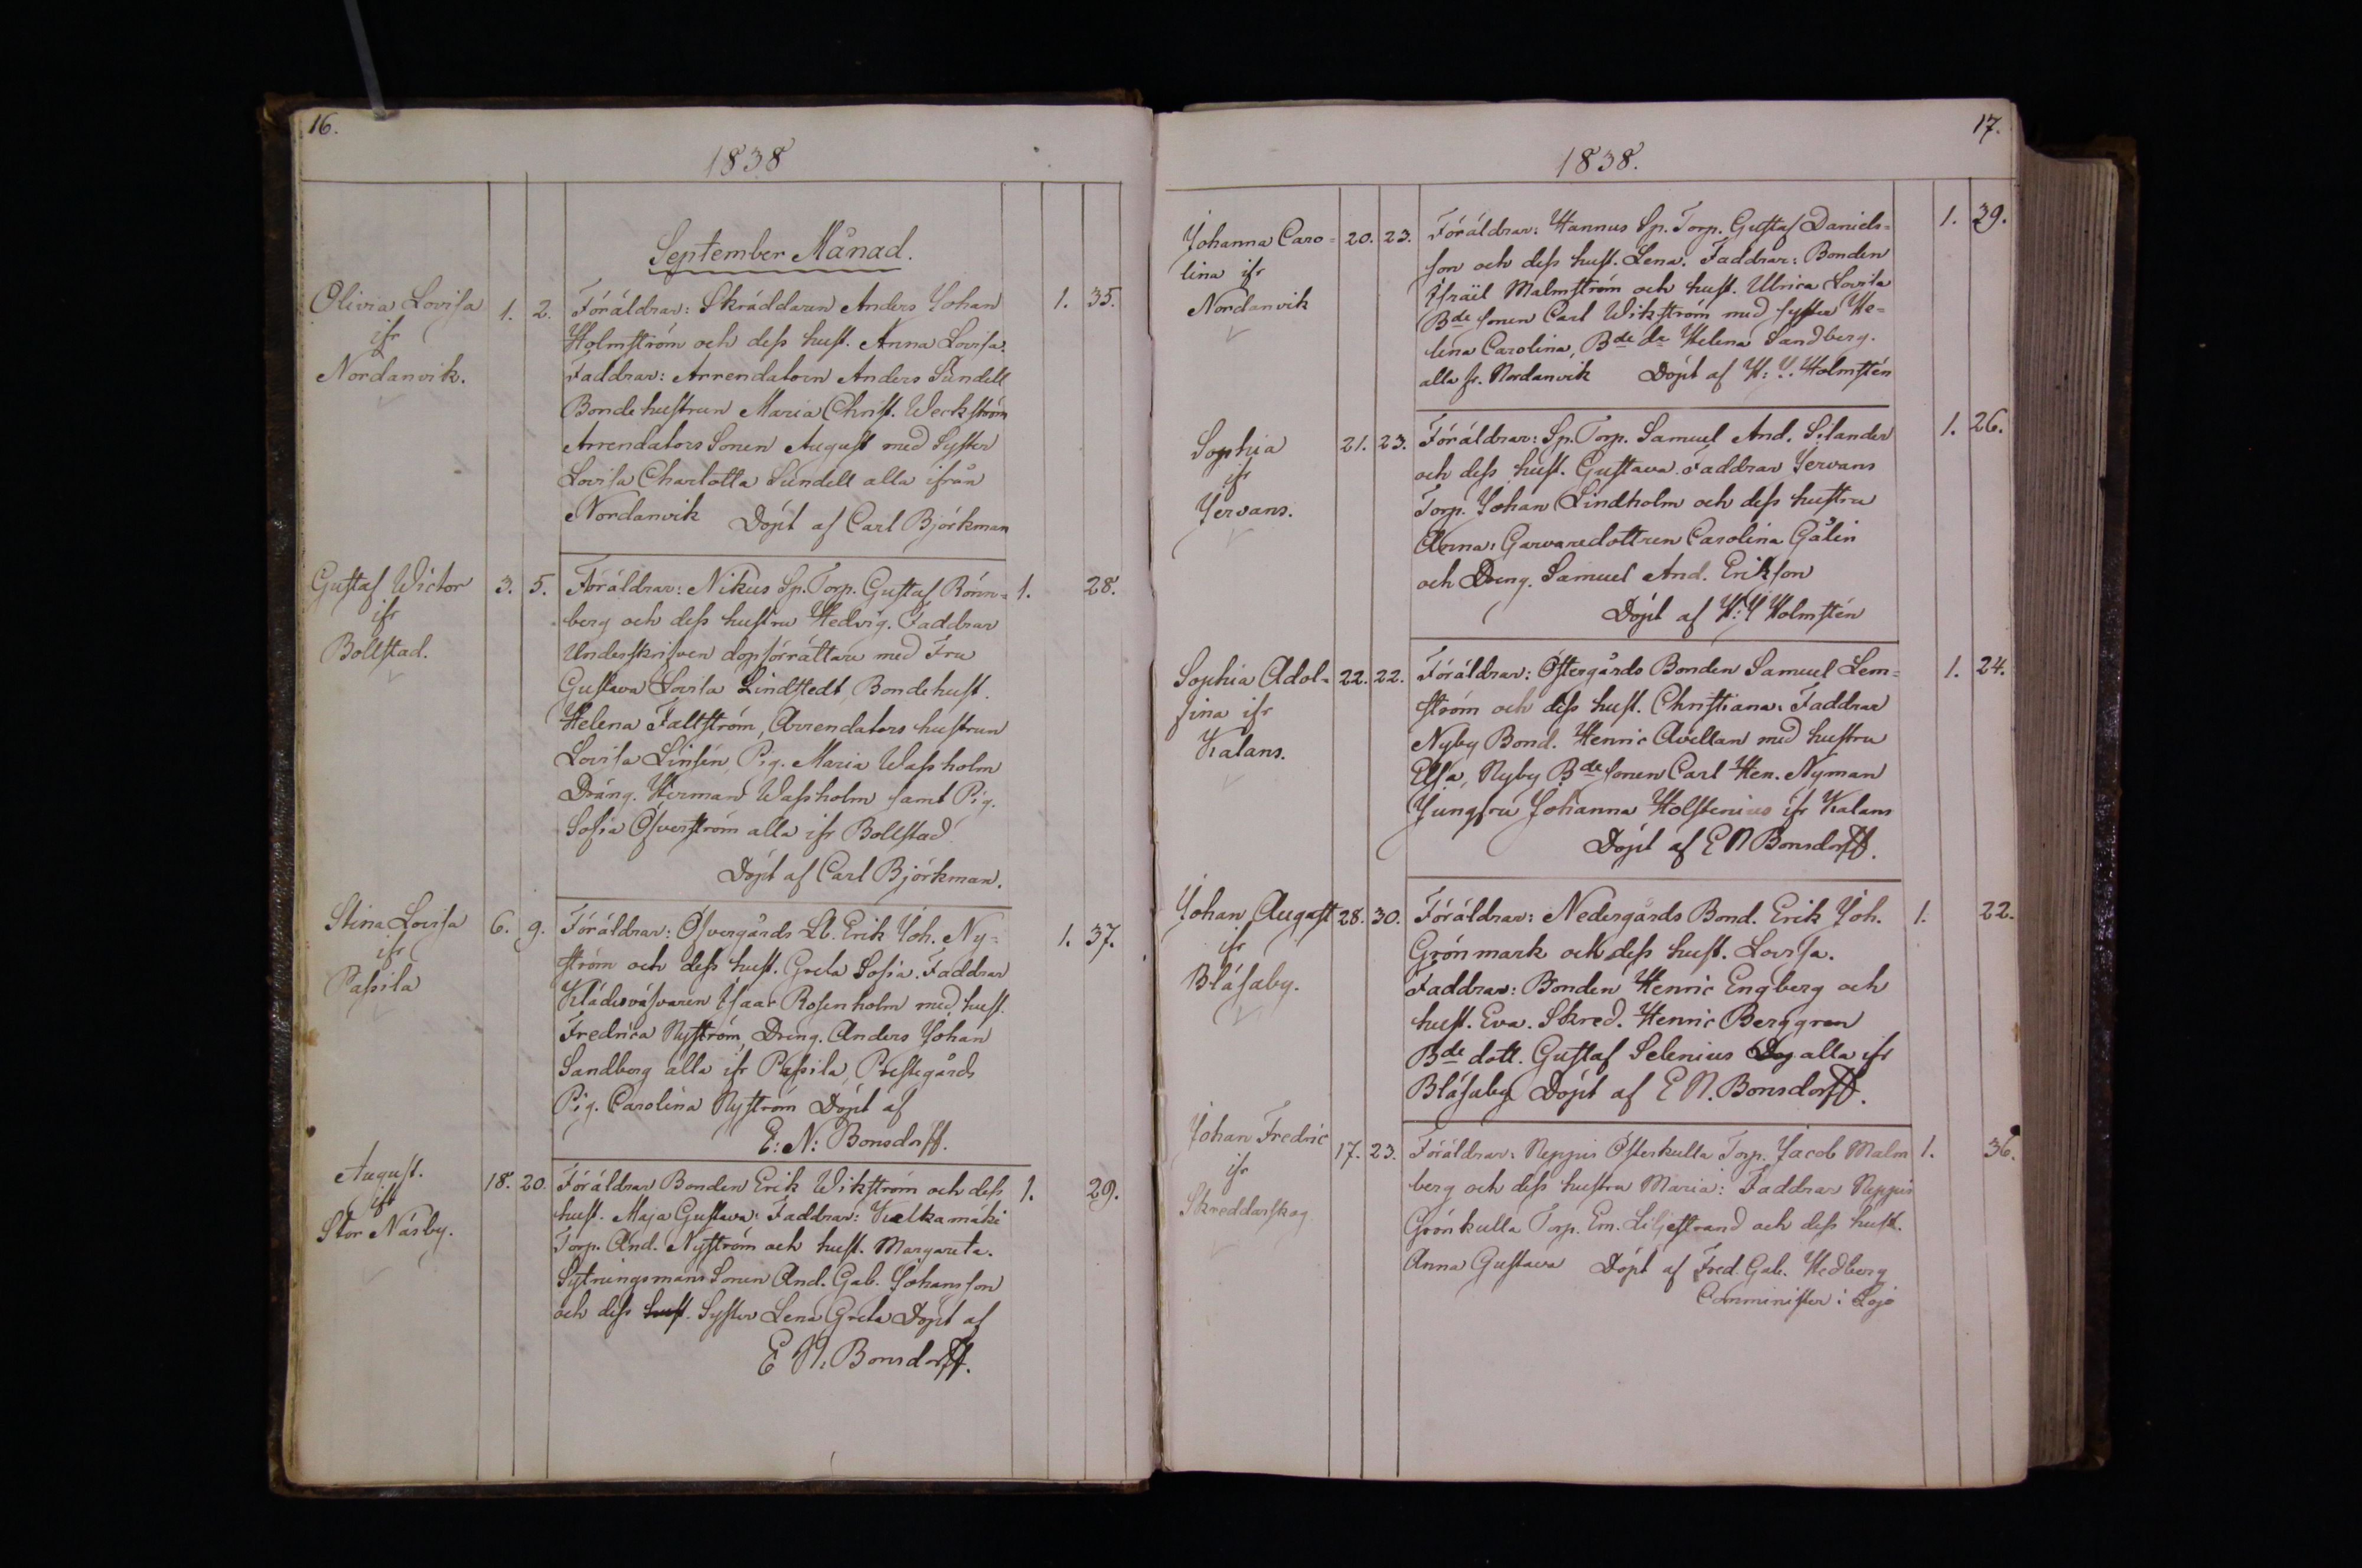 16.
1838
September Månad.
Olivia Lovisa
ifr
Nordanvik.
1. 2.
Föräldrar: Skräddaren Anders Johan
Holmström och dess hust. Anna Lovisa.
Faddrar: Arrendatorn Anders Sundell
Bondehustrun Maria Christ. Werkström
Arrendators Sonen August med Syster
Lovisa Charlotta Sundell alla ifrån
Nordanvik Döpt af Carl Björkman
1. 35.
Gustaf Wictor
ifr
Bollstad.
3. 5.
Föräldrar: Nikus Sp. Torp. Gustaf Rönn=
berg och dess hustru Hedvig. Faddrar
Underskrifven dopförrättare med Fru
Gustava Lovisa Lindstedt, Bondehust.
Helena Fältström, Arrendators hustrun
Lovisa Linsén, Pig. Maria Wassholm
Dräng. Herman Wassholm samt Pig.
Sofia Öfverström alla ifr Bollstad
Döpt af Carl Björkman.
1. 28.
Stina Lovisa
ifr
Passila
6. 9.
Föräldrar: Öfvergårds Lb. Erik Joh. Ny=
ström och dess hust. Greta Sofia. Faddrar
Klädesväfvaren Isaac Rosenholm med hust.
Fredrica Nyström, Dreng. Anders Johan
Sandberg alla ifr Passila, Prestegårds
Pig. Carolina Nyström Döpt af
E: N: Bonsdorff.
1. 37.
August.
ifr
Stor Näsby.
18. 20.
Föräldrar Bonden Erik Wikström och dess
hust. Maja Gustava. Faddrar: Kalkamäki
Torp. And. Nyström och hust. Margareta.
Sytningsmans Sonen And. Gab. Johansson
och dess hust. Syster Lena Greta Döpt af
E N: Bonsdorff.
1. 29.
17.
1838.
Johanna Caro=
lina ifr
Nordanvik
20. 23.
Föräldrar: Hannus Sp. Torp. Gustaf Daniels=
son och dess hust. Lena. Faddrar: Bonden
Israël Malmström och hust. Ulrica Lovisa
Bde sonen Carl Wikström med syster He=
lena Carolina, Bde dr Helena Sandberg.
alla fr. Nordanvik Döpt af H: J. Holmstén
1. 29.
Sophia
ifr
Jervans.
21. 23.
Föräldrar: Sp. Torp. Samuel And. Silander
och dess hust. Gustava. Faddrar Jervans
Torp. Johan Lindholm och dess hustru
Anna, Garvaredottren Carolina Gålin
och Dreng. Samuel And. Erikson
Döpt af H: J Holmstén
1. 26.
Sophia Adol=
fina ifr
Kalans.
22. 22.
Föräldrar: Östergårds Bonden Samuel Lem=
ström och dess hust. Christiana. Faddrar
Nyby Bond. Henric Avellan med hustru
Elsa, Nyby Bde sonen Carl Hen. Nyman
Jungfru Johanna Holstenius ifr Kalans
Döpt af E N Bonsdorff.
1. 24.
Johan August
ifr
Blåsaby.
28. 30.
Föräldrar: Nedergårds Bond. Erik Joh.
Grönmark och dess hust. Lovisa.
Faddrar: Bonden Henric Engberg och
hust. Eva. Skred. Henric Berggren
Bde dott. Gustaf Selenius alla ifr
Blåsaby Döpt af E N. Bonsdorff.
1. 22.
Johan Fredric
ifr
Skreddarskog
17. 23.
Föräldrar: Neppis Österkulla Torp. Jacob Malm
berg och dess hustru Maria: Faddrar Neppis
Grönkulla Torp. Em. Liljestrand och dess hust.
Anna Gustava Döpt af Fred. Gab. Hedberg
Comminister i Lojo
1. 36.